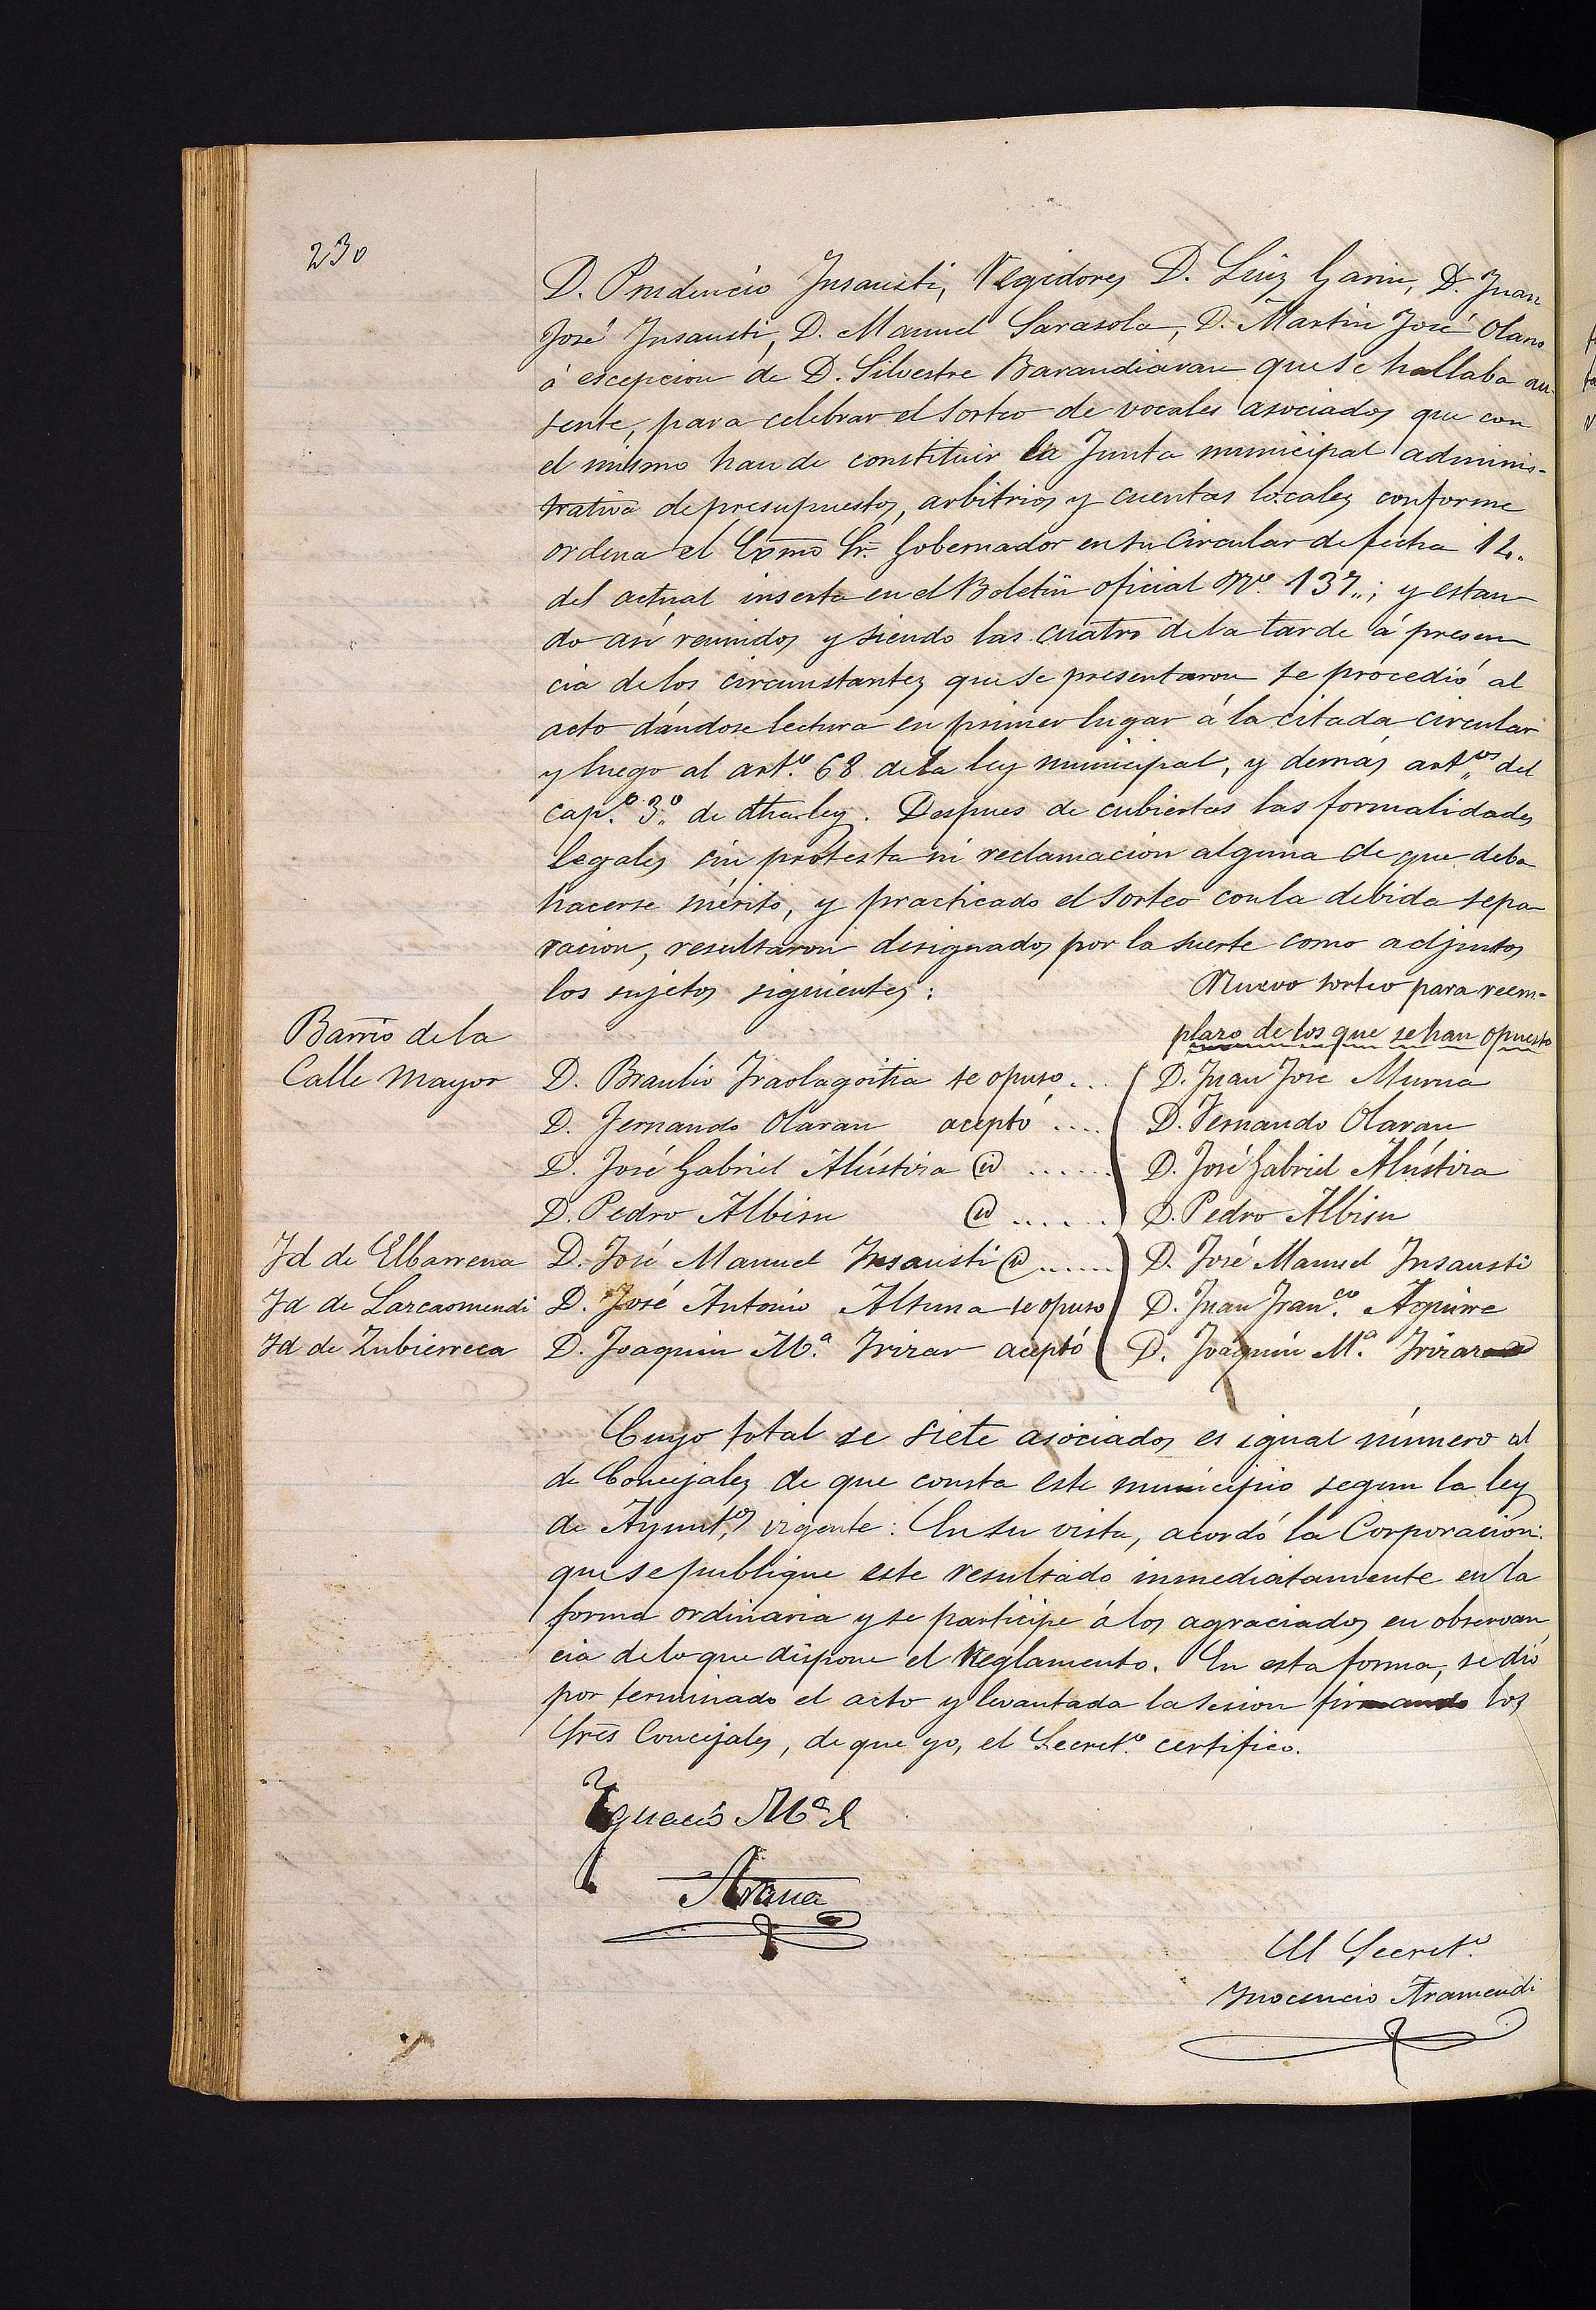 230
D. Prudencio Insausti, Regidores D. Luiz Garin, D. Juan
José Insausti, D. Manuel Sarasola, D. Martin José Olano
á escepcion de D. Silvestre Barandiaran que se hallaba au-
sente, para celebrar el sorteo de vocales asociados que con
el mismo han de constituir la Junta municipal adminis-
trativa de presupuestos, arbitrios y cuentas locales conforme
ordena el Exmo Sr. Gobernador en su Circular de fecha 14„
del actual inserta en el Boletin oficial Nº. 137„; y estan-
do asi reunidos y siendo las cuatro de la tarde á presen-
cia de los circunstantes que se presentaron se procedió al
acto dándose lectura en primer lugar á la citada circular
y luego al art.º 68 de la ley municipal, y demás art.ºs del
cap.º 3º de dha ley. Despues de cubiertas las formalidades
legales sin protesta ni reclamacion alguna de que deba
hacerse mérito, y practicado el sorteo con la debida sepa-
racion, resultaron designados por la suerte como adjuntos
los sujetos siguientes:
Nuevo sorteo para reem-
plazo de los que se han opuesto
Barrio de la
Calle mayor D. Braulio Iraolagoitia se opuso... D. Juan José Murua
D. Fernando Olaran aceptó .... D. Fernando Olaran
D. José Gabriel Alústiza id ...... D. José Gabriel Alústiza
D. Pedro Albisu id ...... D. Pedro Albisu
Id de Elbarrena D. José Manuel Insausti id ...... D. José Manuel Insausti
Id de Larcaomendi D. José Antonio Altuna se opuso D. Juan Fran.co Aguirre
Id de Zubierreca D. Joaquin M.ª Irizar aceptó D. Joaquin M.ª Irizar
Cuyo total de siete asociados es igual número al
de Concejales de que consta este municipio segun la ley
de Ayunt.os vigente: En su vista, acordó la Corporacion:
que se publique este resultado inmediatamente en la
forma ordinaria y se participe á los agraciados en observan
cia de lo que dispone el Reglamento. En esta forma, se dió
por terminado el acto y levantada la sesion firmando los
Sres Concejales, de que yo, el Secret.º certifico.
Ignacio M.ª
Arana
El Secret.º
Inocencio Aramendi